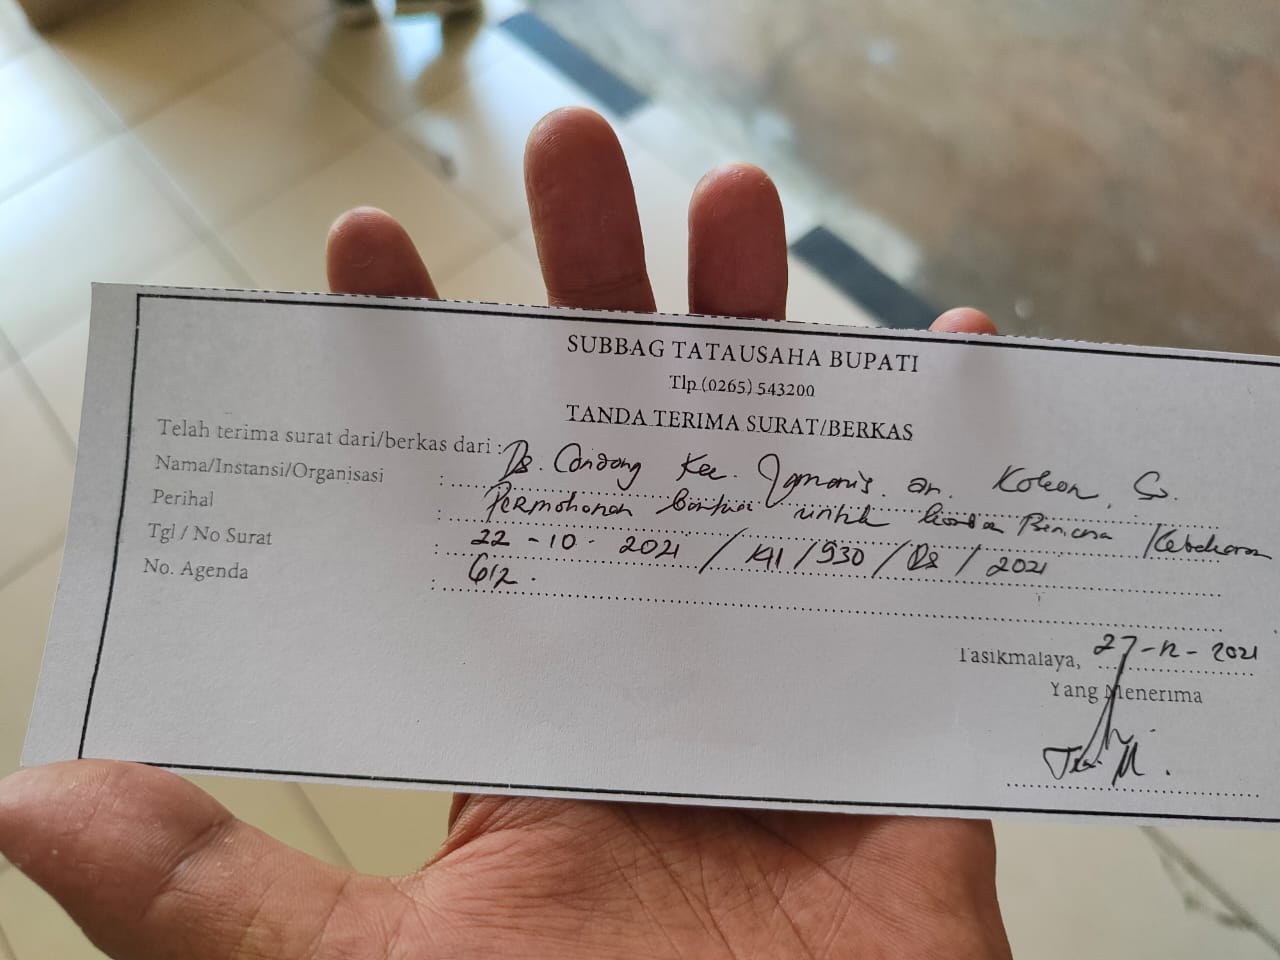 SUBBAG TATAUSAHA BUPATI
Tlp (0265) 543200
TANDA TERIMA SURAT/BERKAS
Telah terima surat dari/berkas dari :
Nama/Instansi/Organisasi : Ds. Condong Kec. Jamanis. an.
Perihal : Permohonan bantuan untuk korban Bencana Kebakaran
Tgl / No Surat : 22 - 10 - 2021 / 141 / 930 / Ds / 2021
No. Agenda : 612.
Tasikmalaya, 27-12-2021
Yang Menerima